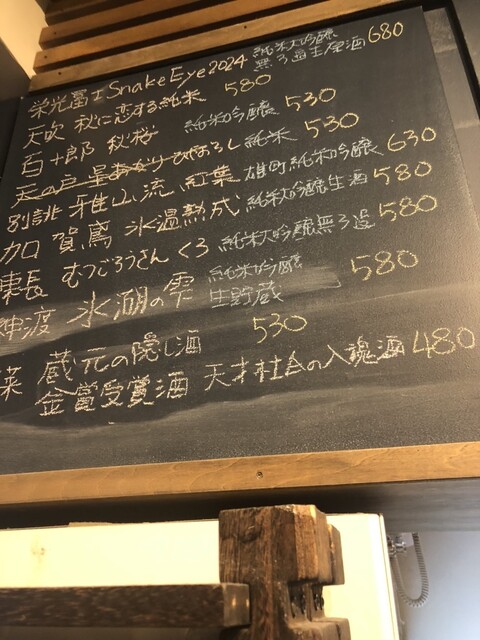 栄光冨士 Snake Eye 2024 純米大吟醸 無ろ過生原酒 680
天吹 秋に恋する純米 580
百十郎 秋桜 純米吟醸 530
天の戸 星あかり ひやおろし 純米 530
別誂 雅山流 紅葉 雄町純米吟醸 630
加賀鳶 氷温熟成 純米大吟醸生酒 580
東長 むつごろうさん くろ 純米大吟醸無ろ過 580
神渡 氷湖の雫 純米吟醸 生貯蔵 580
蔵元の隠し酒 530
金賞受賞酒 天才社会の入魂酒 480